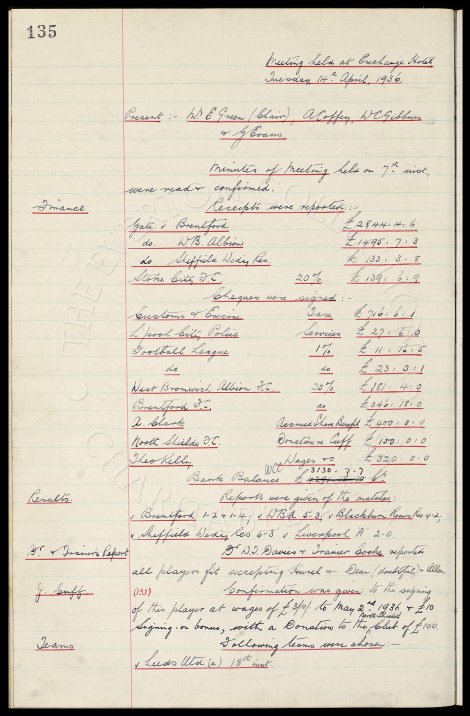 135
Meeting held at Exchange Hotel
Tuesday 14th April, 1936.
Present :- Mr. E Green (Chair), A Coffey, W C Gibbins
& G Evans.
Minutes of Meeting held on 7th inst.
were read & confirmed.
Finance Receipts were reported :-
Gate v Brentford £2844 : 4 : 6
do. W B. Albion £1495 : 7 : 3
do. Sheffield Wedy Res. £133 : 3 : 8
Stoke City F.C. 20% £139 : 6 : 9
Cheques were signed :-
Customs & Excise Tax £716 : 6 : 1
L'pool City Police Services £27 : 6 : 0
Football League 1% £11 : 16 : 5
do do £23 : 0 : 1
West Bromwich Albion F.C. 20% £181 : 4 : 0
Brentford F.C. do £346 : 18 : 0
A. Clark Accrued Share Benefit £400 : 0 : 0
North Shields F.C. Donation re Cuff £100 : 0 : 0
Theo Kelly Wages &c £320 : 0 : 0
WCG 3130 . 7 . 7
Bank Balance £ Cr.
Results. Reports were given of the matches :
v Brentford 1-2 & 1-4; v WBA 5-3; v Blackburn Rovers Res 4-2,
v Sheffield Wedy Res 6-3 v Liverpool A 2-0.
Dr. & Trainer's Report Dr D.I. Davies & Trainer Cooke reported
all players fit excepting & Dean (doubtful) & Allen
J. Cuff (132) Confirmation was given to the signing
of this player at wages of £3/10/ to May 2nd 1936 & £10
North Shields
Signing-on bonus, with a Donation to the Club of £100.
Teams Following teams were chosen :-
v Leeds Utd (a) 18th inst.